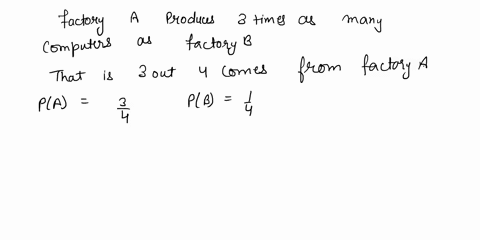 Factory A Produces 3 times as many
Computers as factory B
That is 3 out 4 comes from factory A
P(A) = 3/4 P(B) = 1/4